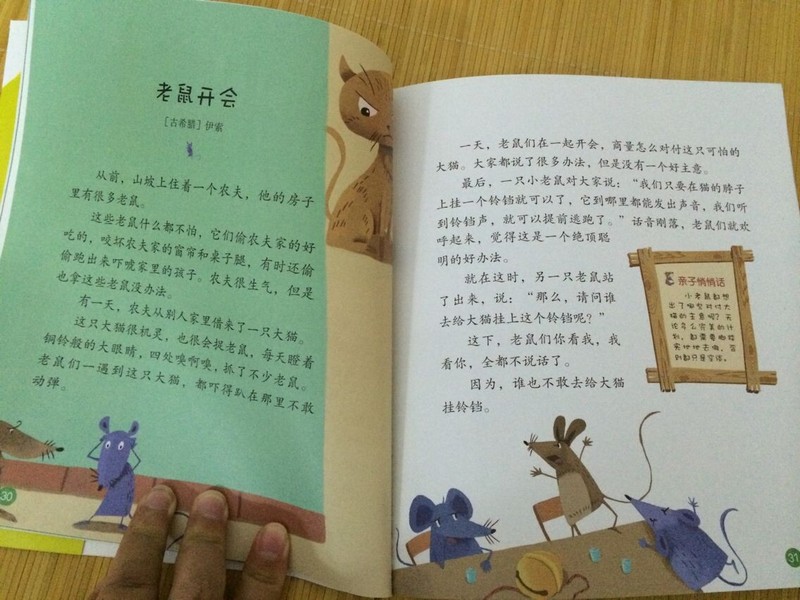 老鼠开会
[古希腊]伊索
从前，山坡上住着一个农夫，他的房子
里有很多老鼠。
这些老鼠什么都不怕，它们偷农夫家的好
吃的，咬坏农夫家的窗帘和桌子腿，有时还偷
偷跑出来吓唬家里的孩子。农夫很生气，但是
也拿这些老鼠没办法。
有一天，农夫从别人家里借来了一只大猫。
这只大猫很机灵，也很会捉老鼠，每天瞪着
铜铃般的大眼睛，四处嗅啊嗅，抓了不少老鼠。
老鼠们一遇到这只大猫，都吓得趴在那里不敢
动弹。
30
一天，老鼠们在一起开会，商量怎么对付这只可怕的
大猫。大家都说了很多办法，但是没有一个好主意。
最后，一只小老鼠对大家说：“我们只要在猫的脖子
上挂一个铃铛就可以了，它到哪里都能发出声音，我们听
到铃铛声，就可以提前逃跑了。”话音刚落，老鼠们就欢
呼起来，觉得这是一个绝顶聪
明的好办法。
就在这时，另一只老鼠站
了出来，说：“那么，请问谁
去给大猫挂上这个铃铛呢？”
这下，老鼠们你看我，我
看你，全都不说话了。
因为，谁也不敢去给大猫
挂铃铛。
亲子悄悄话
小老鼠都想
出了哪些对付大
猫的主意呢？无
论多么完美的计
划，都需要脚踏
实地地去做，否
则都只是空谈。
31